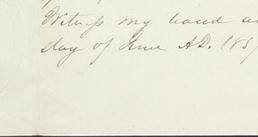 Witness my hand an
day of June A.D. 185